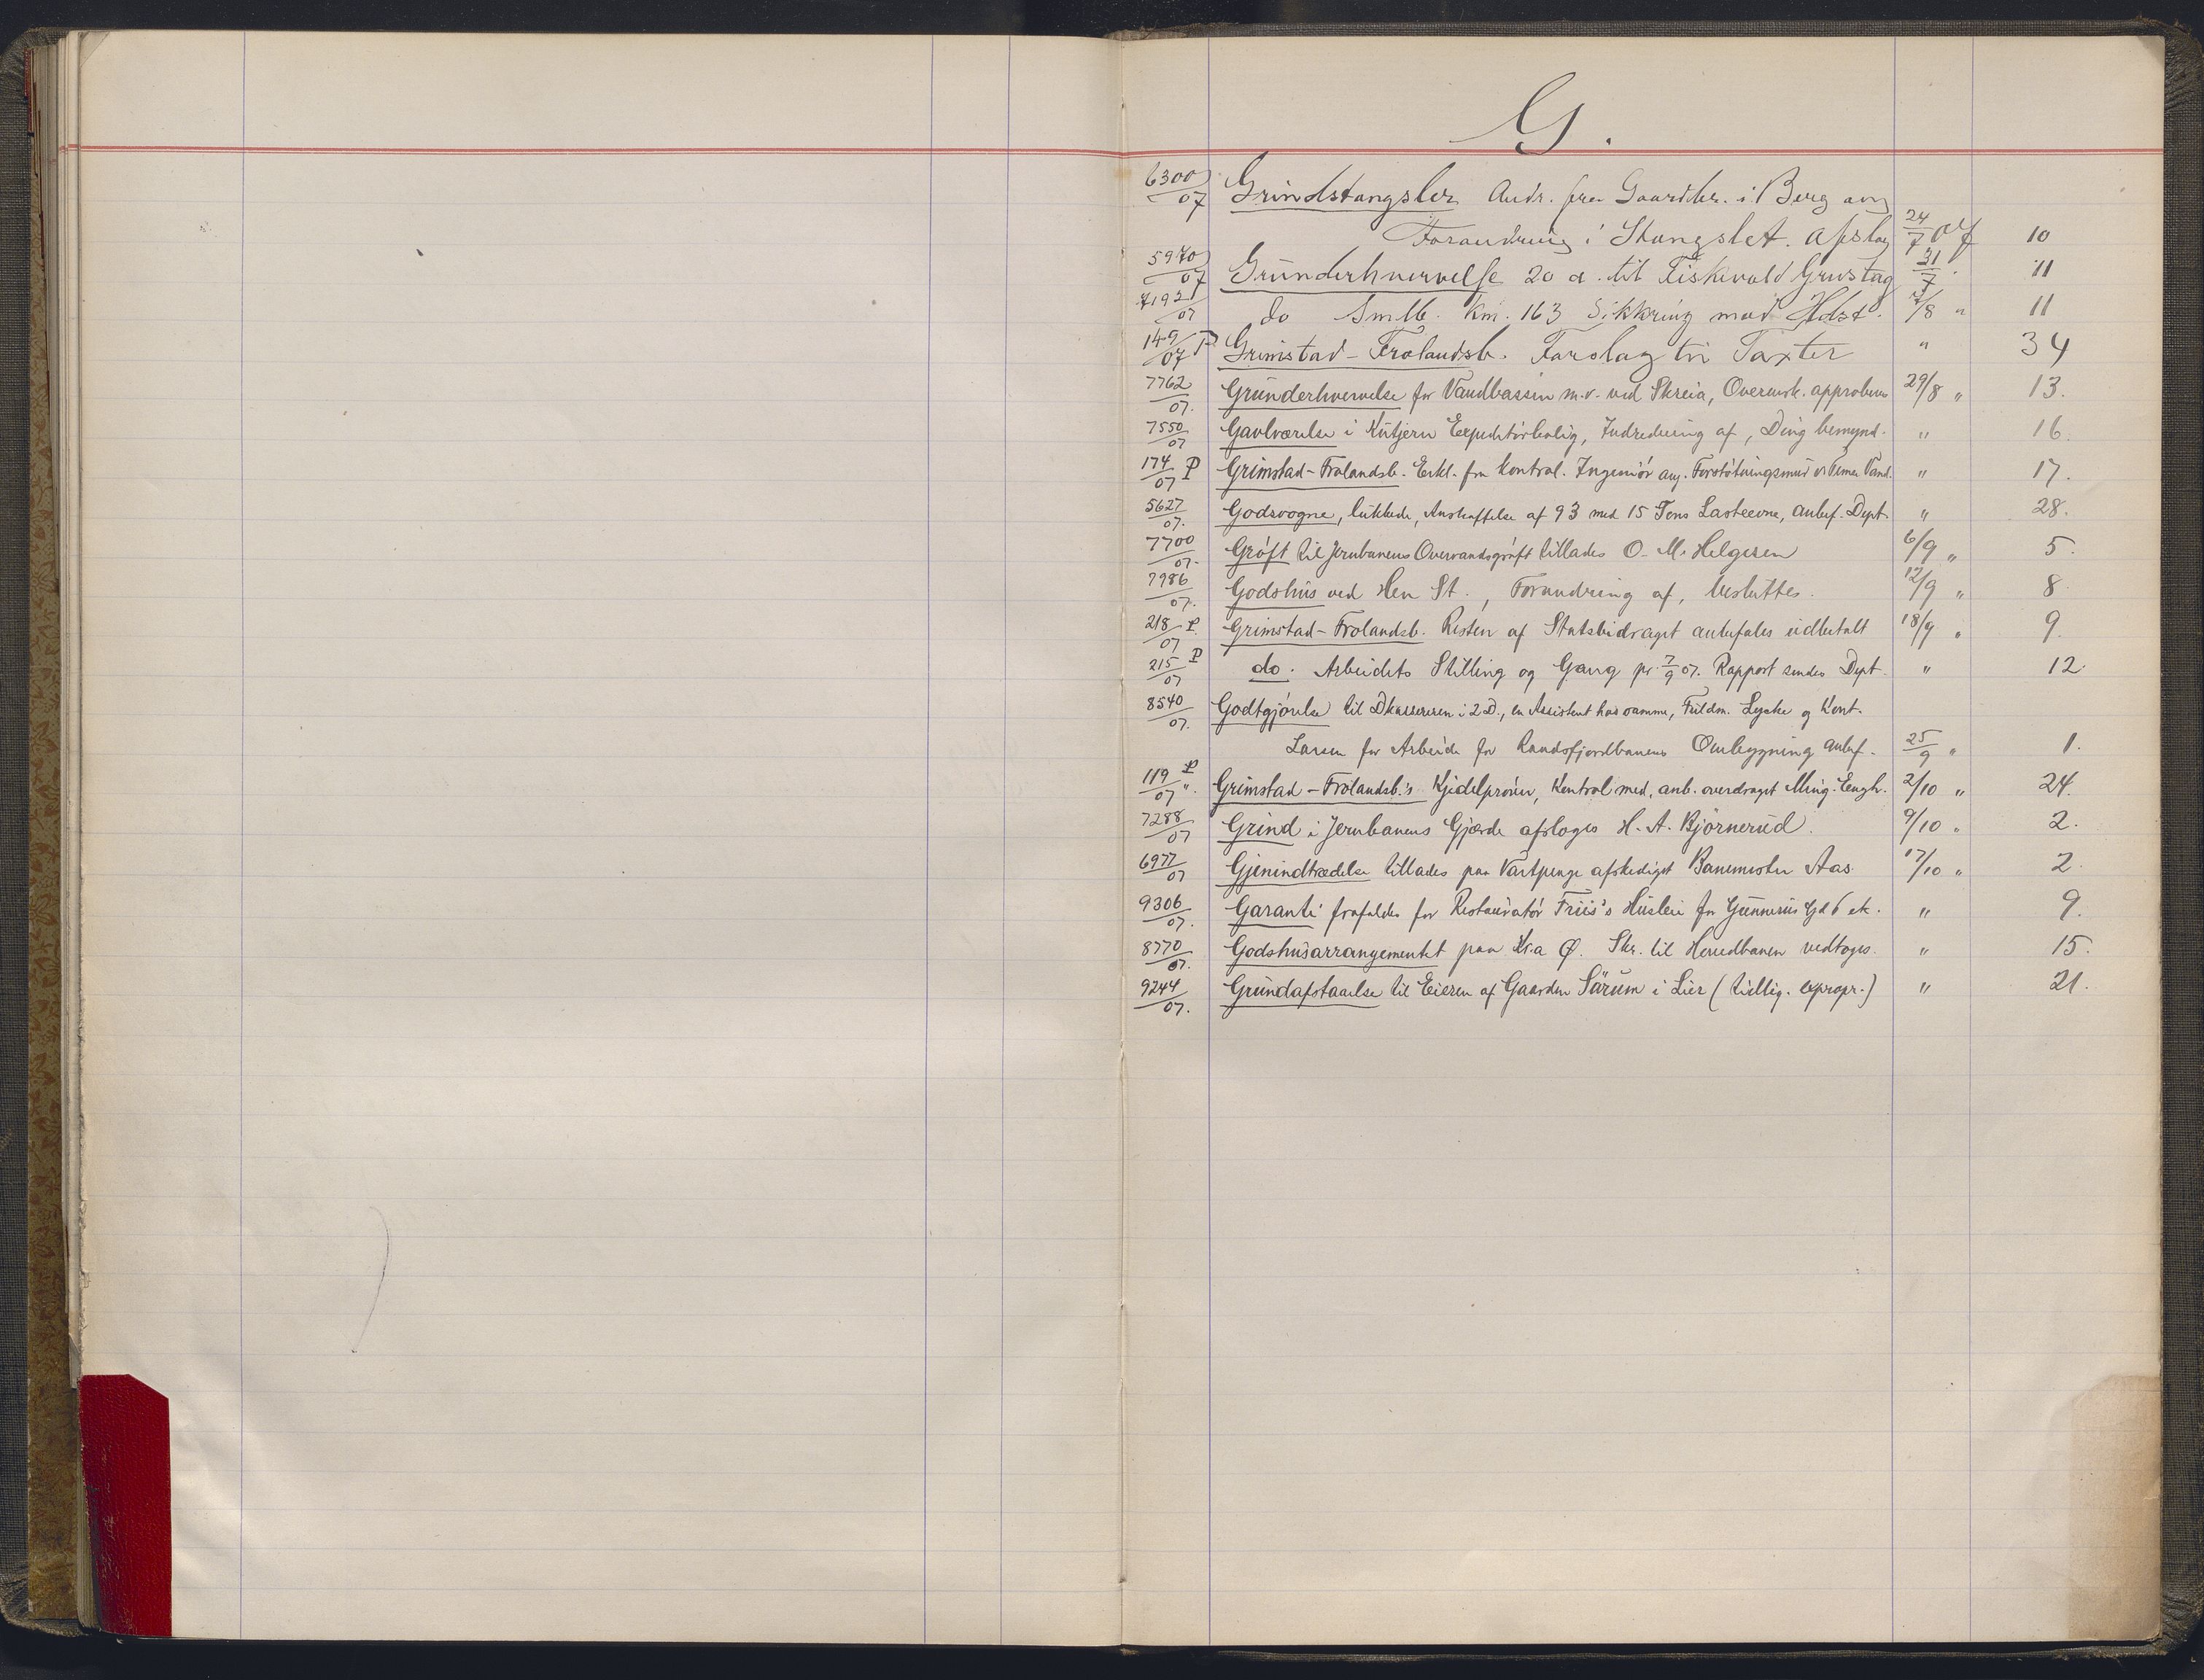 G.
6300/07 Grindstangsler Andr. fra Gaardbr. i Berg ang
Forandring i Stangslet. Afslag 24/7 07 10
5970/07 Grunderhvervelse 20 a. til Fiskevold Grustag 31/7 " 11
7192/07 do Smlb. Km. 163 Sikkring mod 7/8 " 11
149/07 P Grimstad-Frolandsb. Forslag til Taxter " 34
7762/07. Grunderhvervelse for Vandbassin m.v. ved Skreia, Overensk. approberes 29/8 " 13.
7550/07 Gavlværelse i Kutjern Expeditörbolig, Indredning af, Ding bemynd. " 16.
174/07 P Grimstad-Frolandsb. Erkl. fra Kontrol. Ingeniör ang. Forstötningsmur v. Temse Vand. " 17.
5627/07. Godsvogne, lukkede, Anskaffelse af 93 med 15 Tons Lasteevne, anbef. Dept. " 28.
7700/07. Gröft til Jernbanens Overvandsgröft tillades O. M. Helgesen 6/9 " 5.
7986/07. Godshus ved Hen St., Forandring af, besluttes. 12/9 " 8.
218/07 P. Grimstad-Frolandsb. Resten af Statsbidraget anbefales udbetalt 18/9 " 9.
215/07 P do. Arbeidets Stilling og Gang pr. 7/9 07. Rapport sendes Dept. " 12.
8540/07. Godtgjörelse til Dkassereren i 2D., en Assistent hos samme, Fuldm. Lycke og Kont.
Larsen for Arbeide for Randsfjordbanens Ombygning anbef. 25/9 " 1.
119/07 P ". Grimstad-Frolandsb.'s Kjedelpröver, Kontrol med, anb. overdraget Ming. Engh. 2/10 " 24.
7288/07 Grind i Jernbanens Gjærde afsloges H. A. Björnerud. 9/10 " 2.
6977/07 Gjenindtrædelse tillades paa Vartpenge afskediget Banemester Aas. 17/10 " 2.
9306/07. Garanti frafaldes for Restauratör Friis's Husleie for Gunnerus Gd 6 etc. " 9.
8770/07. Godshusarrangementet paa Kr.a Ø. Skr. til Hovedbanen vedtoges. " 15.
9244/07. Grundafstaaelse til Eieren af Gaarden Särum i Lier (tidlig. expropr.) " 21.